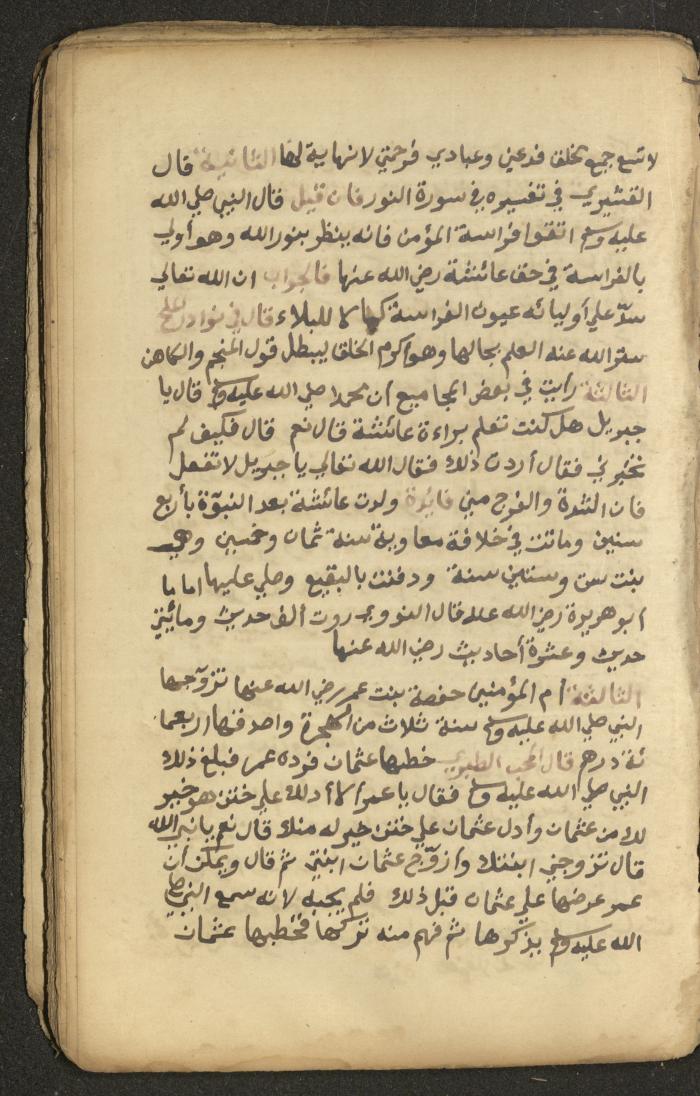 لا تسع جميع خلقي فدعني وعبادي فرحمتي لا نهاية لها الثانية قال
القشيري في تفسيره في سورة النور فان قيل قال النبي صلي الله
عليه وسلم اتقوا فراسة المؤمن فانه ينظر بنور الله وهو أولي
بالفراسة في حق عائشة رضي الله عنها فالجواب ان الله تعالي
سدّ علي أوليائه عيون الفراسة كمالا للبلاء قال في نوادر الملح
ستر الله عنه العلم بحالها وهو اكرم الخلق ليبطل قول المنجم والكاهن
الثالثة رأيت في بعض المجاميع ان محمدا صلي الله عليه وسلم قال يا
جبريل هل كنت تعلم براءة عائشة قال نعم قال فكيف لم
تخبرني فقال أردت ذلك فقال الله تعالي يا جبريل لا تفعل
فان الشدة والفرج مني فايدة ولدت عائشة بعد النبوّة بأربع
سنين وماتت في خلافة معاوية سنة ثمان وخمسين وهي
بنت ست وستين سنة ودفنت بالبقيع وصلي عليها اماما
ابو هريرة رضي الله عنه قال النووي روت ألف حديث ومائتي
حديث وعشرة أحاديث رضي الله عنها
الثالثة أم المؤمنين حفصة بنت عمر رضي الله عنها تزوّجها
النبي صلي الله عليه وسلم سنة ثلاث من الهجرة واصدقها اربعما
ئة درهم قال المحب الطبري خطبها عثمان فرده عمر فبلغ ذلك
النبي صلي الله عليه وسلم فقال يا عمر ألا أدلك علي ختن هو خير
لك من عثمان وأدل عثمان علي ختن خير له منك قال نعم يا نبي الله
قال تزوجني ابنتك وأزوّج عثمان ابنتي ثم قال ويمكن أن
عمر عرضها علي عثمان قبل ذلك فلم يجبه لانه سمع النبي صلي
الله عليه وسلم يذكرها ثم فهم منه تركها فخطبها عثمان